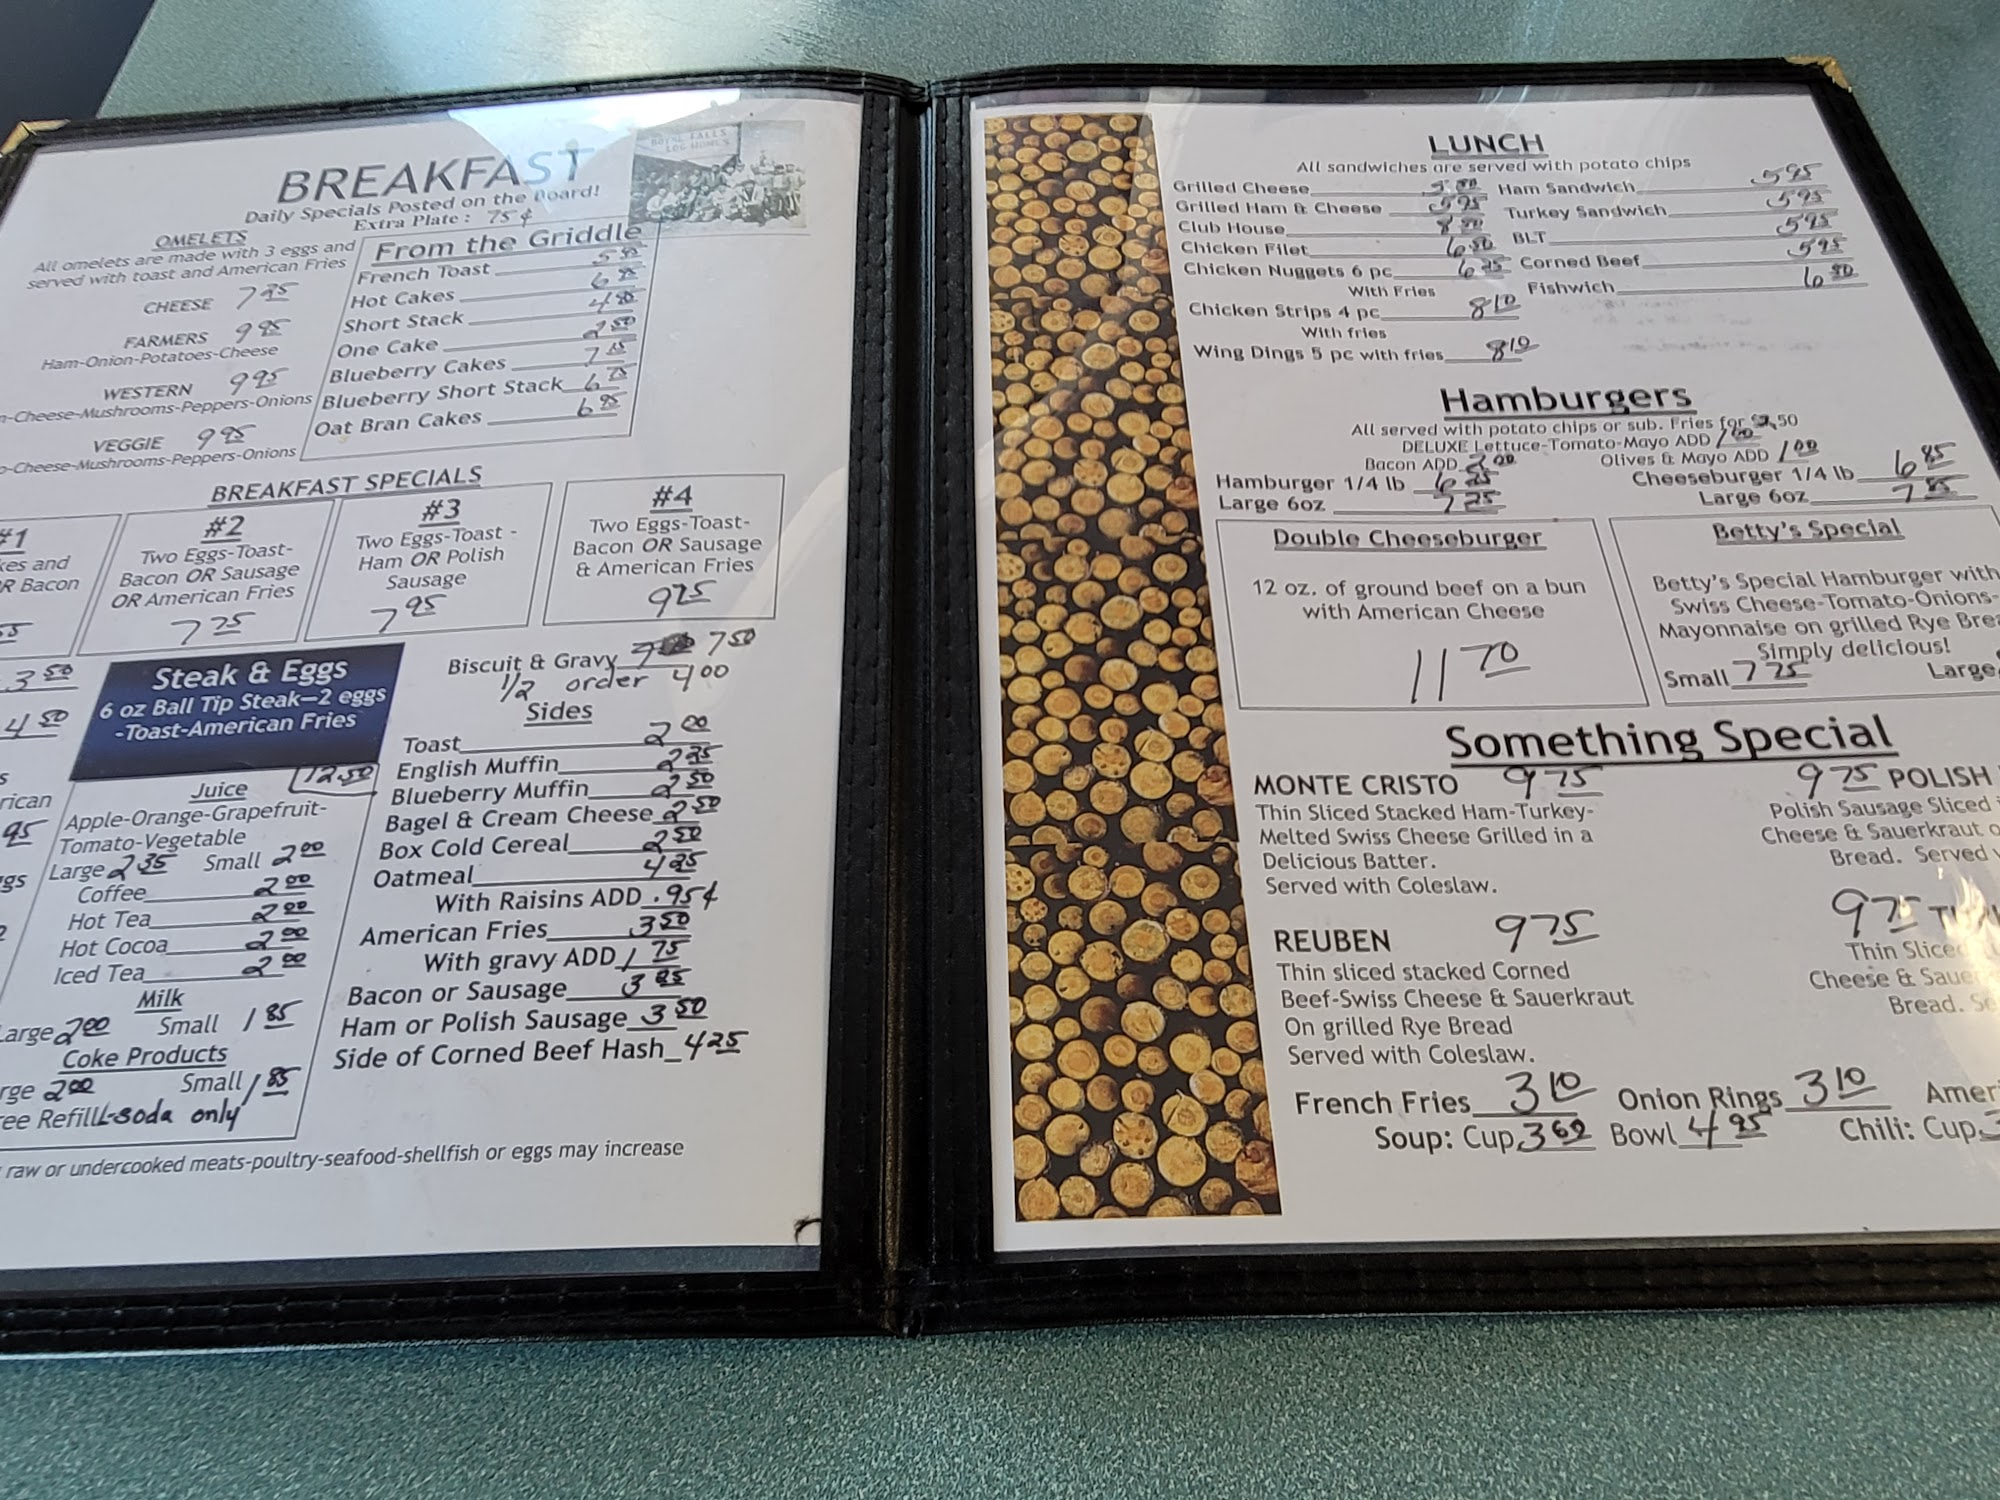 BREAKFAST
Daily Specials Posted on the Board!
Extra Plate: 75¢
BOYNE FALLS
LOG HOMES
OMELETS
All omelets are made with 3 eggs and
served with toast and American Fries
CHEESE
FARMERS 9 95
Ham-Onion-Potatoes-Cheese
WESTERN 9 95
-Cheese-Mushrooms-Peppers-Onions
VEGGIE 9 95
-Cheese-Mushrooms-Peppers-Onions
From the Griddle
French Toast
Hot Cakes
Short Stack
One Cake 2 50
Blueberry Cakes
Blueberry Short Stack
Oat Bran Cakes 6 95
BREAKFAST SPECIALS
#1
kes and
OR Bacon
#2
Two Eggs-Toast-
Bacon OR Sausage
OR American Fries
7 25
#3
Two Eggs-Toast -
Ham OR Polish
Sausage
7 95
#4
Two Eggs-Toast-
Bacon OR Sausage
& American Fries
9 25
3 50
4 50
rican
95
gs
Steak & Eggs
6 oz Ball Tip Steak—2 eggs
-Toast-American Fries
12.50
Biscuit & Gravy 7 50
1/2 order 4 00
Juice
Apple-Orange-Grapefruit-
Tomato-Vegetable
Large 2 35 Small 2 00
Coffee 2 00
Hot Tea 2 00
Hot Cocoa 2 00
Iced Tea 2 00
Milk
Large 2 00 Small 1 85
Coke Products
rge 2 00 Small 1 85
ree Refill-soda only
Sides
Toast 2 00
English Muffin
Blueberry Muffin 2 50
Bagel & Cream Cheese 2 50
Box Cold Cereal 2 50
Oatmeal
With Raisins ADD .95¢
American Fries 3 50
With gravy ADD 1 75
Bacon or Sausage
Ham or Polish Sausage 3 50
Side of Corned Beef Hash 4 25
raw or undercooked meats-poultry-seafood-shellfish or eggs may increase
LUNCH
All sandwiches are served with potato chips
Grilled Cheese
Grilled Ham & Cheese 5 95
Club House
Chicken Filet 6 50
Chicken Nuggets 6 pc
With Fries
Chicken Strips 4 pc 8 10
With fries
Wing Dings 5 pc with fries 8 10
Ham Sandwich 5 95
Turkey Sandwich 5 95
BLT 5 95
Corned Beef 5 95
Fishwich 6 50
Hamburgers
All served with potato chips or sub. Fries for $2.50
DELUXE Lettuce-Tomato-Mayo ADD 1 00
Bacon ADD 2 00 Olives & Mayo ADD 1 00
Hamburger 1/4 lb 6 25 Cheeseburger 1/4 lb 6 85
Large 6oz 7 25 Large 6oz 7 85
Double Cheeseburger
12 oz. of ground beef on a bun
with American Cheese
11 70
Betty's Special
Betty's Special Hamburger with
Swiss Cheese-Tomato-Onions-
Mayonnaise on grilled Rye Brea
Simply delicious!
Small 7 25 Large
Something Special
MONTE CRISTO 9 75
Thin Sliced Stacked Ham-Turkey-
Melted Swiss Cheese Grilled in a
Delicious Batter.
Served with Coleslaw.
9 75 POLISH
Polish Sausage Sliced
Cheese & Sauerkraut o
Bread. Served
REUBEN 9 75
Thin sliced stacked Corned
Beef-Swiss Cheese & Sauerkraut
On grilled Rye Bread
Served with Coleslaw.
9 75
Thin Sliced
Cheese & Saue
Bread. Se
French Fries 3 10 Onion Rings 3 10 Amer
Soup: Cup 3 60 Bowl 4 95 Chili: Cup